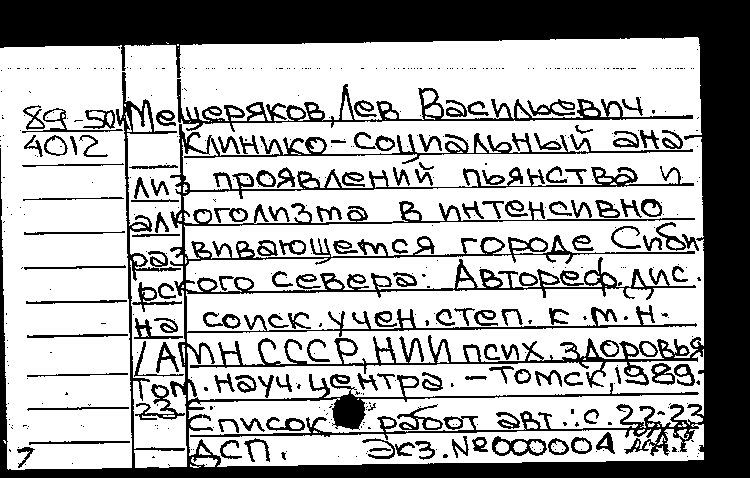 89-50п Мещеряков, Лев Васильевич.
4012 Клинико-социальный ана-
лиз проявлений пьянства и
алкоголизма в интенсивно
развивающемся городе Сиби-
рского севера: Автореф. дис.
на соиск. учен. степ. к.м.н.
/АМН СССР, НИИ псих. здоровья
Том. науч. центра. - Томск, 1989.-
23 с.
Список работ авт.: с. 22-23
ДСП. Экз. №000004
7